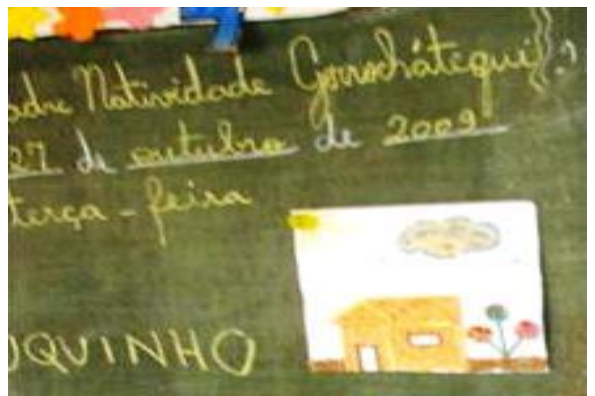 adre Natividade Gorrochátegui
27 de outubro de 2009
terça-feira
QUINHO